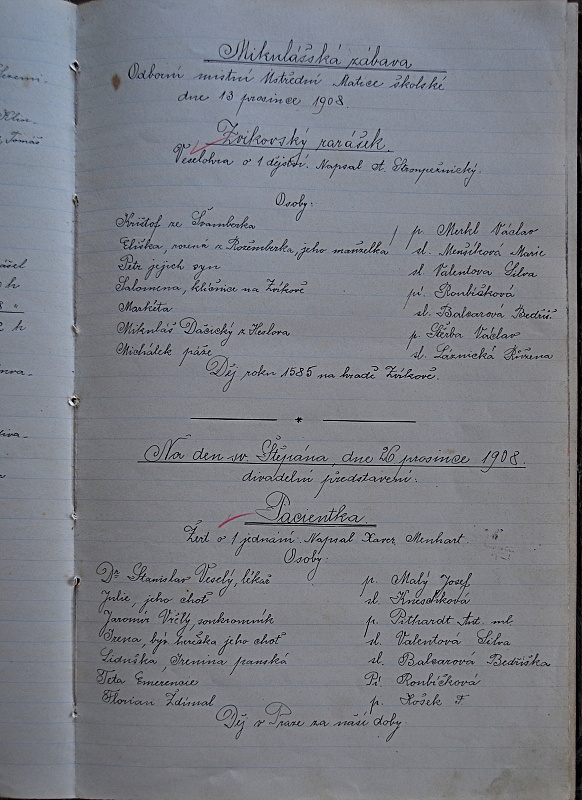 Klim.
Tomáš
h
2 h
Mikulášská zábava
Odborní místní Ústřední Matice školské
dne 13 prosince 1908.
Zvíkovský rarášek.
Veselohra o 1 dějství. Napsal A. Stroupežnický.
Osoby:
Krištof ze Švamberka / p. Merkl Václav
Eliška, rozená z Rožmberka, jeho manželka sl. Menšíková Marie
Petr jejich syn sl Valentova Silva
Salomena, klíčnice na Zvíkově pí. Roubíčková
Markéta sl. Balcarova Bedřiš.
Mikuláš Dačický z Heslova p. Štěrba Václav
Michálek páže sl. Láznická Růžena
Děj roku 1585 na hradě Zvíkově.
Na den sv. Štěpána, dne 26 prosince 1908.
divadelní představení.
Pacientka.
Žert o 1 jednání. Napsal Xaver Menhart.
Osoby:
Dr Stanislav Veselý, lékař p. Malý Josef
Julie, jeho choť sl.
Jaromír Vřelý, soukromník p. Pithardt Ant. ml.
Irena, býv. herečka jeho choť sl. Valentová Silva
Liduška, Irenina panská sl. Balcarová Bedřiška
Teta Emerencie Pí. Roubíčková
Florian Ždímal p. Košek F.
Děj v Praze za naší doby.